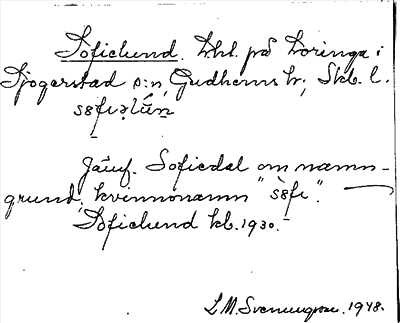 Sofielund. lht. på Loringa i
Sjogerstad s:n, Gudhems hr, Skb. l.
Jämf. Sofiedal om namn-
grund; kvinnonamn "
Sofielund kb. 1930.
L.M. Svennungsson. 1948.